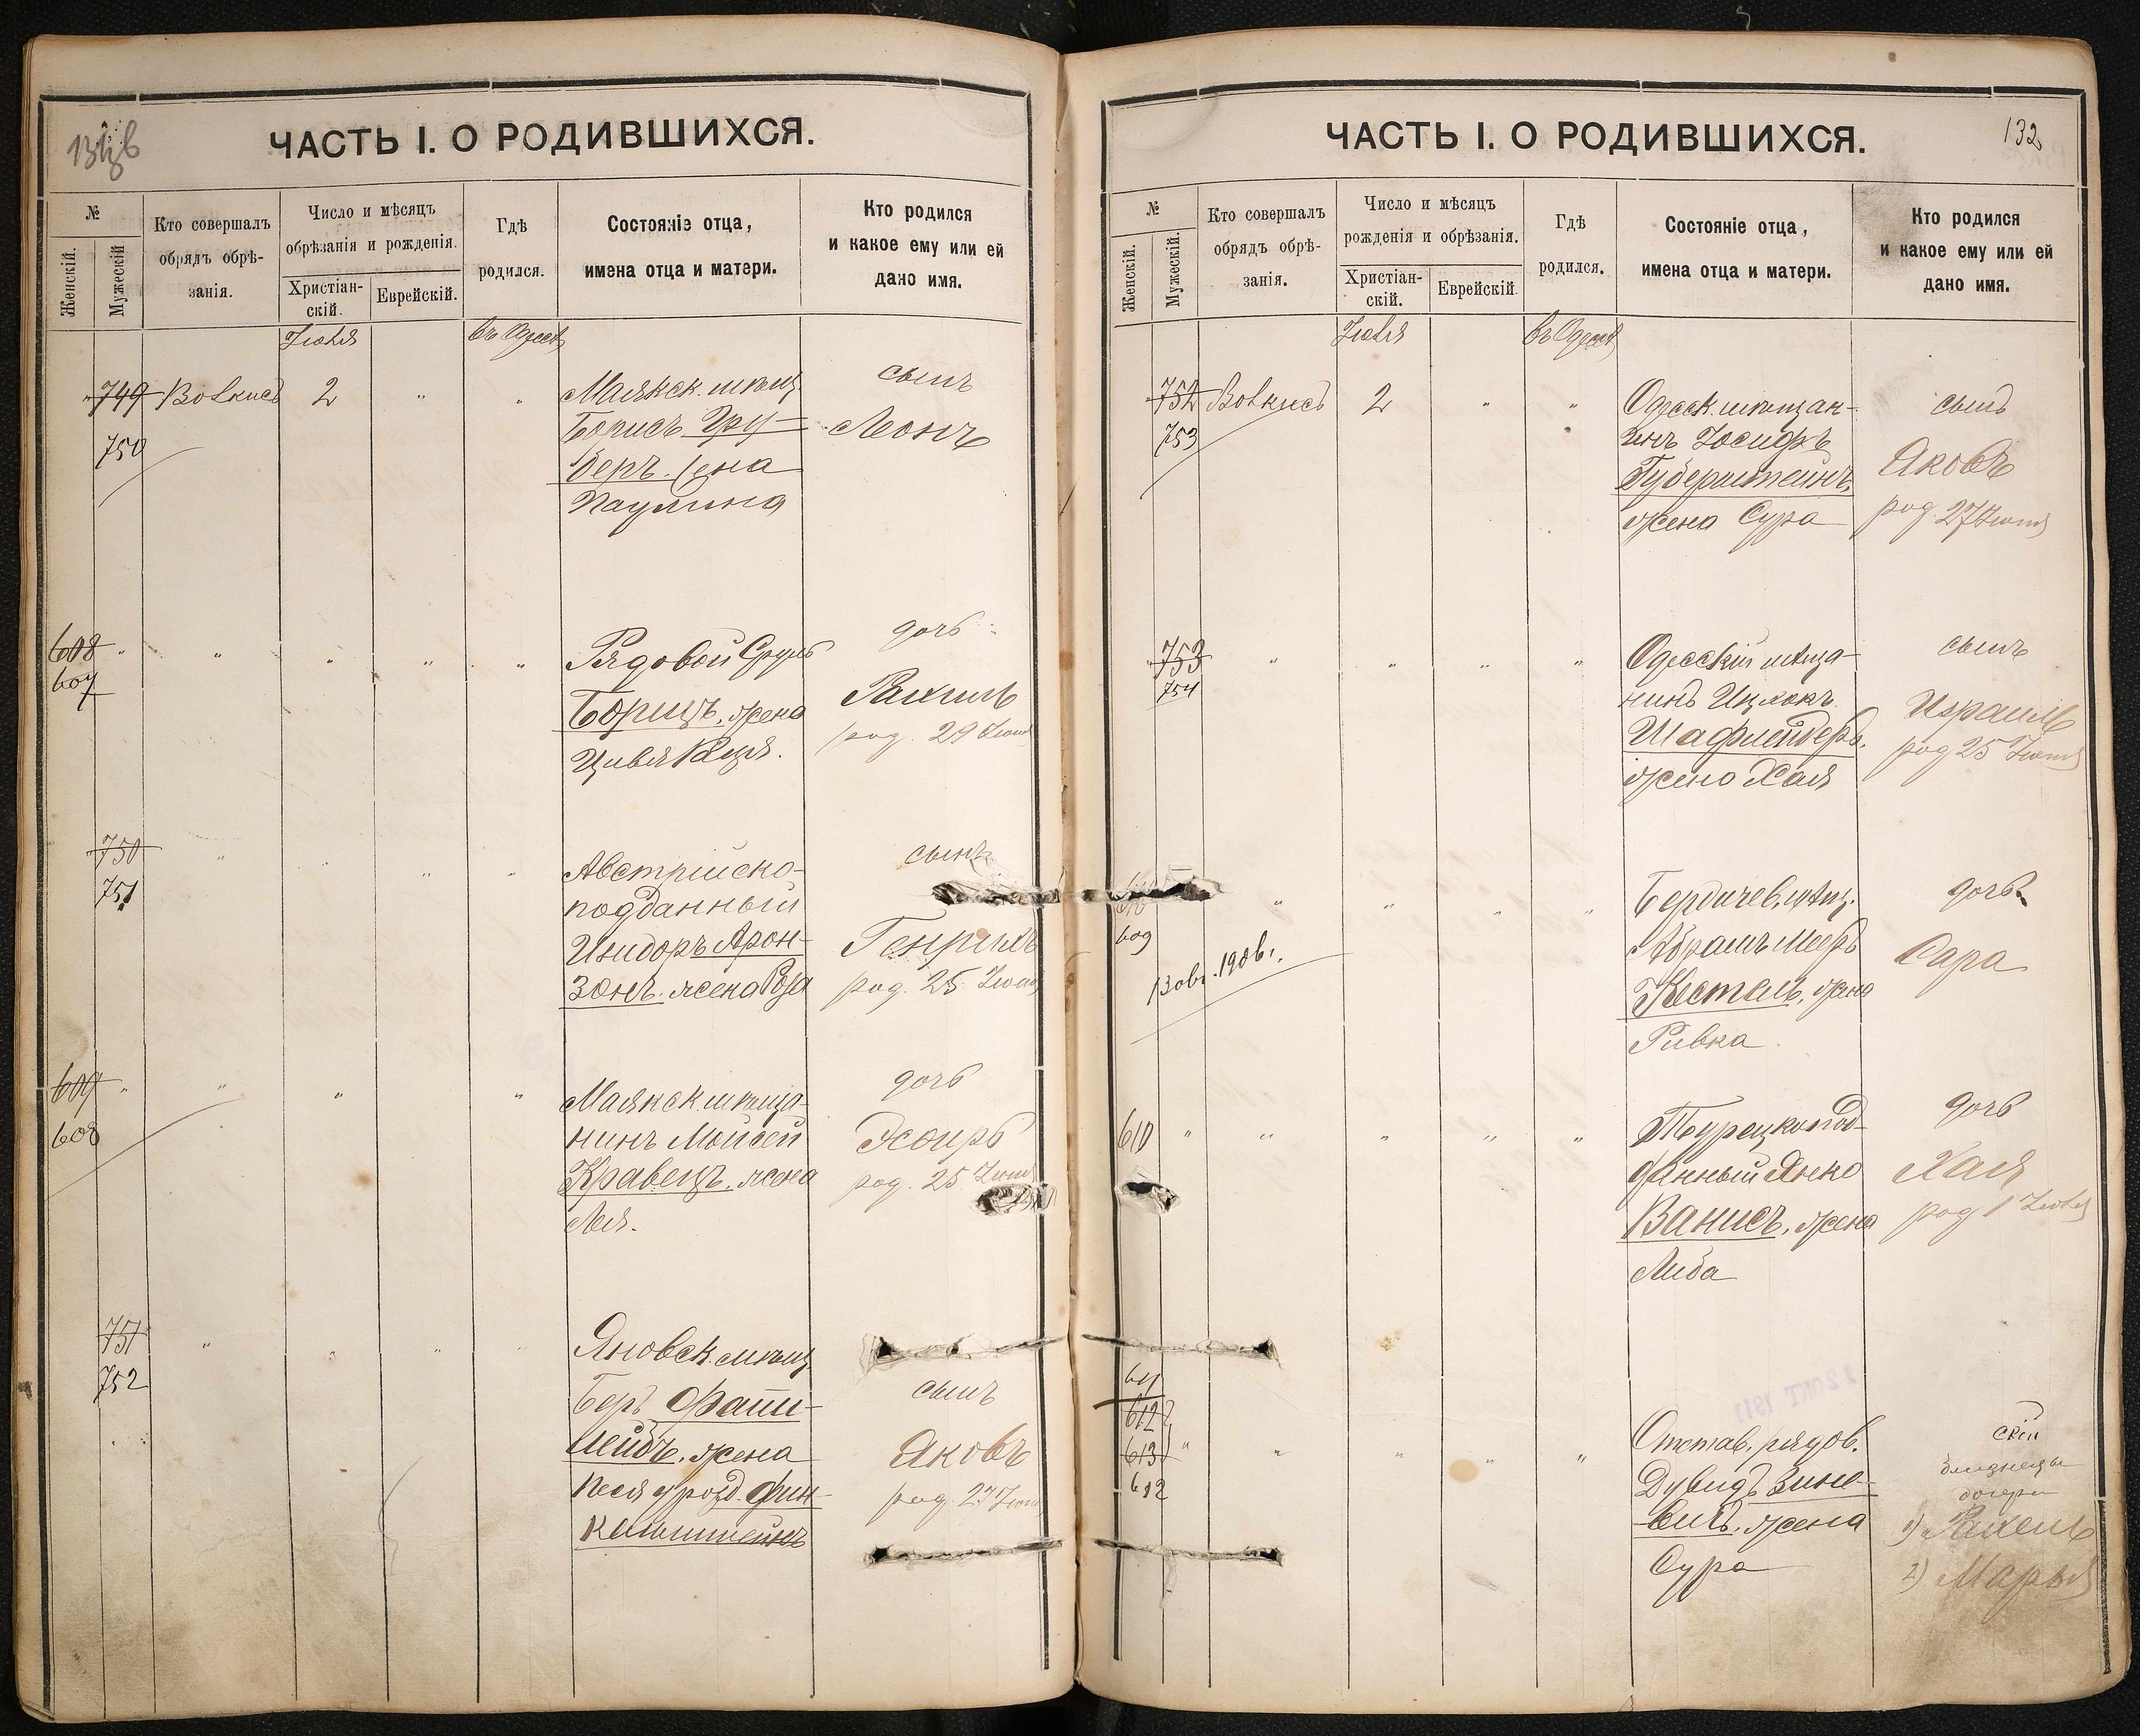 ЧАСТЬ I. О РОДИВШИХСЯ.
№
Женскій.
Мужескій
Кто совершалъ
обрядъ обрѣ-
занія.
Число и мѣсяцъ
обрѣзанія и рожденія.
Христіан-
скій.
Еврейскій.
Гдѣ
родился.
Состояніе отца,
имена отца и матери.
Кто родился
и какое ему или ей
дано имя.
Іюля
въ Одессѣ
749 Вовкисъ 2 " "
750
Маякск. мѣщ.
Борисъ Гру-
беръ. жена
Паулина
сынъ
Леонъ
608 " " " " "
607
Рядовой Сруль
Борицъ, жена
Цивья
дочь
Рахиль
род. 29 Іюня
750 " " " "
751
Австрійско-
подданный
Изидоръ Арон-
зонъ. жена Роза
сынъ
Генрихъ
род. 25 Іюня
609 " " " "
608
Маякск. мѣща-
нинъ Мойсей
Кравецъ, жена
Лея.
дочь
Эсѳирь
род. 25 Іюня
751 " " " "
752
Яновск. мѣщ.
Беръ Фаин-
лейбъ, жена
Песя урожд. Фин-
кельштейнъ
сынъ
Яковъ
род. 27 Іюня
ЧАСТЬ I. О РОДИВШИХСЯ.
132
№
Женскій.
Мужескій.
Кто совершалъ
обрядъ обрѣ-
занія.
Число и мѣсяцъ
рожденія и обрѣзанія.
Христіан-
скій.
Еврейскій.
Гдѣ
родился.
Состояніе отца,
имена отца и матери.
Кто родился
и какое ему или ей
дано имя.
Іюля
въ Одессѣ
752 Вовкисъ 2 " "
753
Одесск. мѣщан-
инъ Іосифъ
Губерштейнъ,
жена Сура
сынъ
Яковъ
род. 27 Іюня
753 " " " "
754
Одесскій мѣща-
нинъ Ицхокъ
Шафшейдеръ,
жена Хая
сынъ
Израиль
род 25 Іюня
610 " " "
609
1906 г.
Бердичев. мѣщ.
Абрамъ Мееръ
Кестель, жена
Ривка
дочь
Сара
610 " " " " "
Турецкопод-
данный Янко
Ванисъ, жена
Либа
дочь
Хая
род 1 Іюля
611
612
613 " " " " "
612
Отстав. рядов.
Дувидъ Зино-
вичъ, жена
Сура
близнецы
дочери
1) Рахель
2) Марья